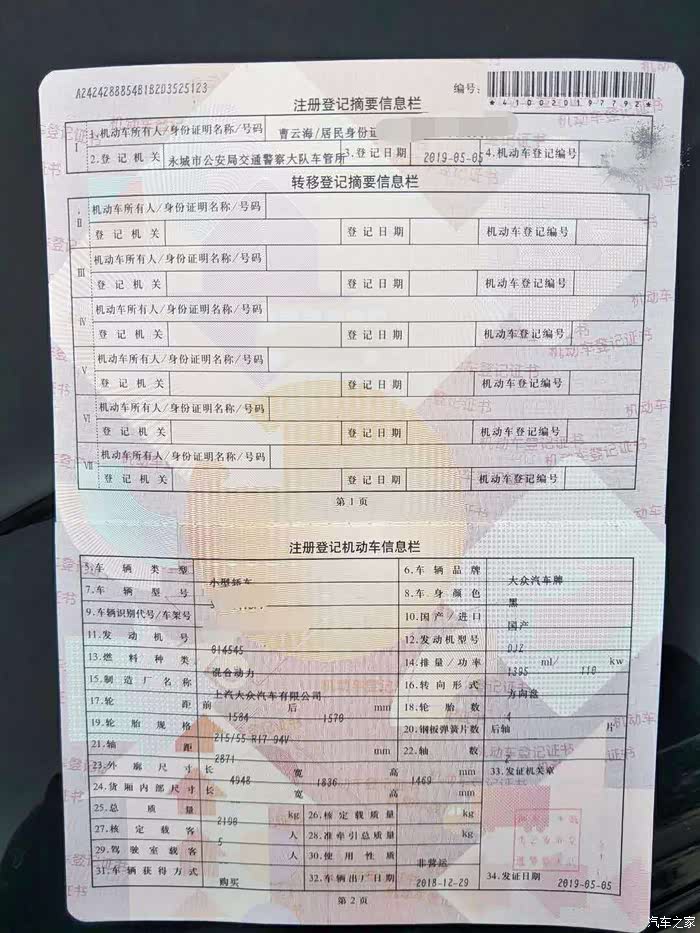 A2424288854B1B2D3525123
编号:
*410020197792*
注册登记摘要信息栏
I 1.机动车所有人/身份证明名称/号码 曹云海/居民身份证
2.登记机关 永城市公安局交通警察大队车管所 3.登记日期 2019-05-05 4.机动车登记编号
转移登记摘要信息栏
II 机动车所有人/身份证明名称/号码
登记机关 登记日期 机动车登记编号
III 机动车所有人/身份证明名称/号码
登记机关 登记日期 机动车登记编号
IV 机动车所有人/身份证明名称/号码
登记机关 登记日期 机动车登记编号
V 机动车所有人/身份证明名称/号码
登记机关 登记日期 机动车登记编号
VI 机动车所有人/身份证明名称/号码
登记机关 登记日期 机动车登记编号
VII 机动车所有人/身份证明名称/号码
登记机关 登记日期 机动车登记编号
第 1 页
注册登记机动车信息栏
5.车辆类型 小型轿车 6.车辆品牌 大众汽车牌
7.车辆型号 8.车身颜色 黑
9.车辆识别代号/车架号 10.国产/进口 国产
11.发动机号 014545 12.发动机型号 DJZ
13.燃料种类 混合动力 14.排量/功率 1395 ml/ 110 kw
15.制造厂名称 上汽大众汽车有限公司 16.转向形式 方向盘
17.轮距 前 1584 后 1570 mm 18.轮胎数 4
19.轮胎规格 215/55 R17 94V 20.钢板弹簧片数 后轴 片
21.轴距 2871 mm 22.轴数 2
23.外廓尺寸 长 4948 宽 1836 高 1469 mm 33.发证机关章
24.货厢内部尺寸 长 宽 高 mm
25.总质量 2190 kg 26.核定载质量 kg
27.核定载客 5 人 28.准牵引总质量 kg
29.驾驶室载客 人 30.使用性质 非营运
31.车辆获得方式 购买 32.车辆出厂日期 2018-12-29 34.发证日期 2019-05-05
第 2 页
汽车之家